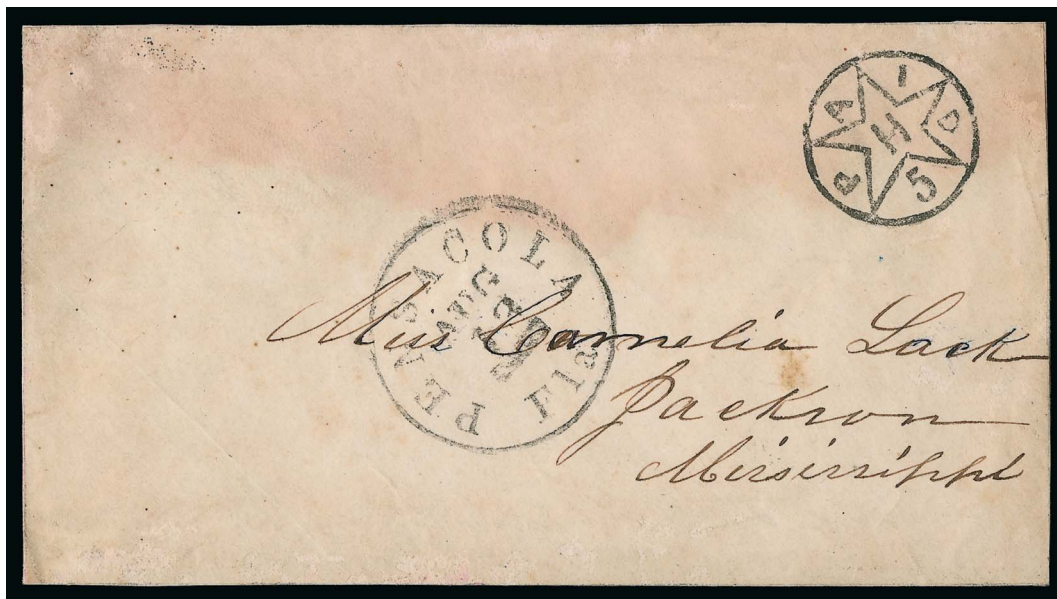 PAID
H
5
PENSACOLA Fla
AUG
Miss Cornelia Lack
Jackson
Mississippi